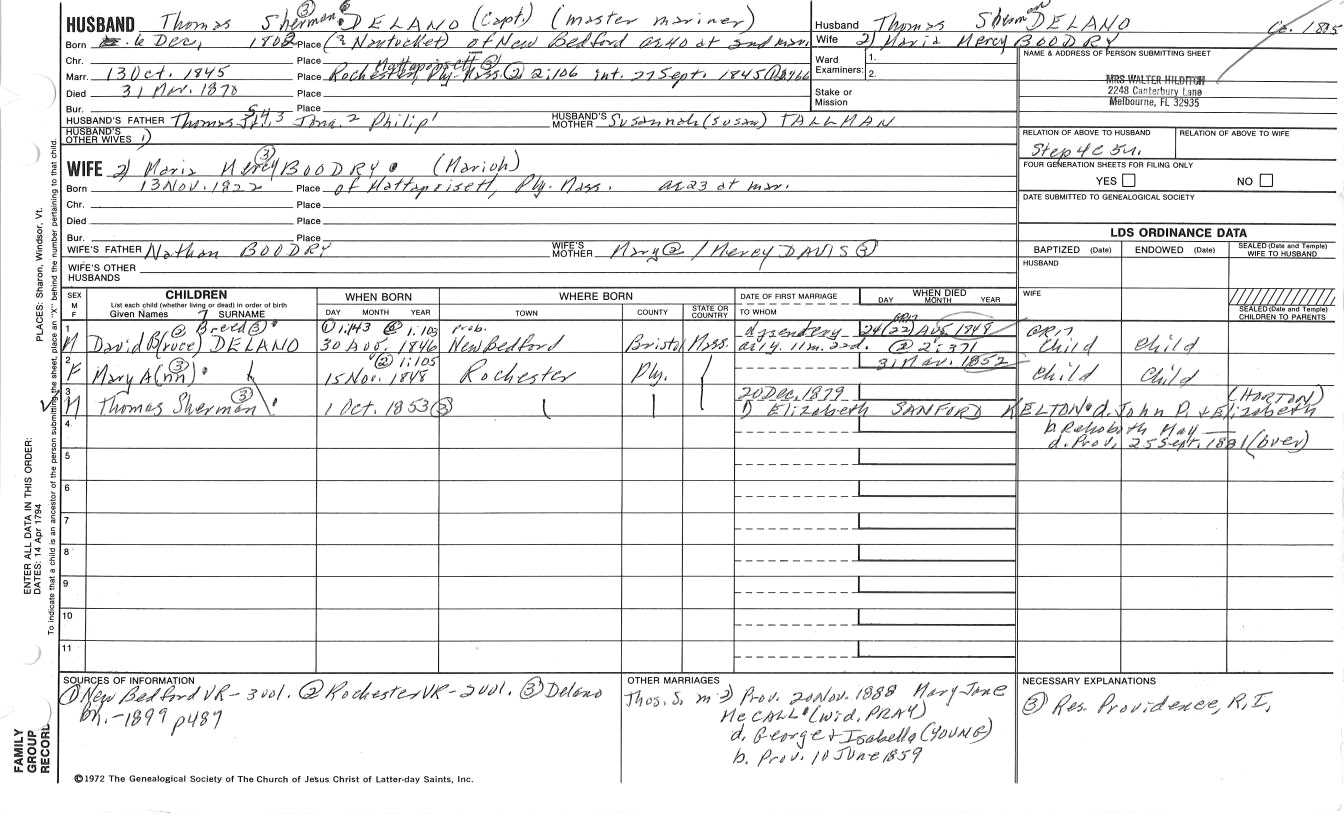 HUSBAND Thomas Sherman ③ 6 DELANO (Capt.) (master mariner)
Born 6 Dec, 1802 Place (② Nantucket) of New Bedford as 40 at 2nd mar.
Chr. Place Mattapoisett ③
Marr. 13 Oct. 1845 Place Rochester, Ply. Mass. ② 2:106 int. 27 Sept. 1845 ①
Died 31 Mar. 1870 Place
Bur. Place
HUSBAND'S FATHER Thomas 5 4 3 Jona. 2 Philip 1 HUSBAND'S MOTHER Susannah (Susan) TALLMAN
HUSBAND'S OTHER WIVES 1)
WIFE 2) Maria Mercy ③ BOODRY (Mariah)
Born 13 Nov. 1822 Place of Mattapoisett, Ply. Mass. as 23 at mar.
Chr. Place
Died Place
Bur. Place
WIFE'S FATHER Nathan BOODRY WIFE'S MOTHER Mary ② / Mercy DAVIS ③
WIFE'S OTHER HUSBANDS
Husband Thomas Sherman DELANO Ca. 1825
Wife 2) Maria Mercy BOODRY
Ward Examiners: 1.
2.
Stake or Mission
NAME & ADDRESS OF PERSON SUBMITTING SHEET
MRS WALTER HILDITCH
2248 Canterbury Lane
Melbourne, FL 32935
RELATION OF ABOVE TO HUSBAND RELATION OF ABOVE TO WIFE
Step 4C 5r.
FOUR GENERATION SHEETS FOR FILING ONLY
YES NO
DATE SUBMITTED TO GENEALOGICAL SOCIETY
LDS ORDINANCE DATA
BAPTIZED (Date) ENDOWED (Date) SEALED (Date and Temple) WIFE TO HUSBAND
HUSBAND
WIFE
SEALED (Date and Temple) CHILDREN TO PARENTS
SEX M F CHILDREN List each child (whether living or dead) in order of birth Given Names SURNAME WHEN BORN DAY MONTH YEAR WHERE BORN TOWN COUNTY STATE OR COUNTRY DATE OF FIRST MARRIAGE TO WHOM WHEN DIED DAY MONTH YEAR
7
1 ② Breed ③ ① 1:143 ② 1:103 prob. dysentery 24 (22) Aug. 1848
M David B(ruce) DELANO 30 Aug. 1846 New Bedford Bristol Mass. as 1y. 11m. 22d. ② 2:371 Child Child
2 ③ ② 1:105 31 Mar. 1852
F Mary A(nn) 15 Nov. 1848 Rochester Ply. Child Child
3 ③ 20 Dec. 1879 (HORTON)
M Thomas Sherman 1 Oct. 1853 ③ 1) Elizabeth SANFORD KELTON d. John P. + Elizabeth
4 b. Rehoboth May
d. Prov. 25 Sept. 1881 (over)
5
6
7
8
9
10
11
SOURCES OF INFORMATION
① New Bedford VR - 3 vol. ② Rochester VR - 2 vol. ③ Delano
bk. - 1899 p487
OTHER MARRIAGES
Thos. S. m 2) Prov. 20 Nov. 1888 Mary Jane
McCALL (wid. PRAY)
d. George + Isabella (YOUNG)
b. Prov. 10 June 1859
NECESSARY EXPLANATIONS
③ Res. Providence, R.I.
©1972 The Genealogical Society of The Church of Jesus Christ of Latter-day Saints, Inc.
ENTER ALL DATA IN THIS ORDER:
DATES: 14 Apr 1794
PLACES: Sharon, Windsor, Vt.
To indicate that a child is an ancestor of the person submitting the sheet, place an "X" behind the number pertaining to that child.
FAMILY
GROUP
RECORD